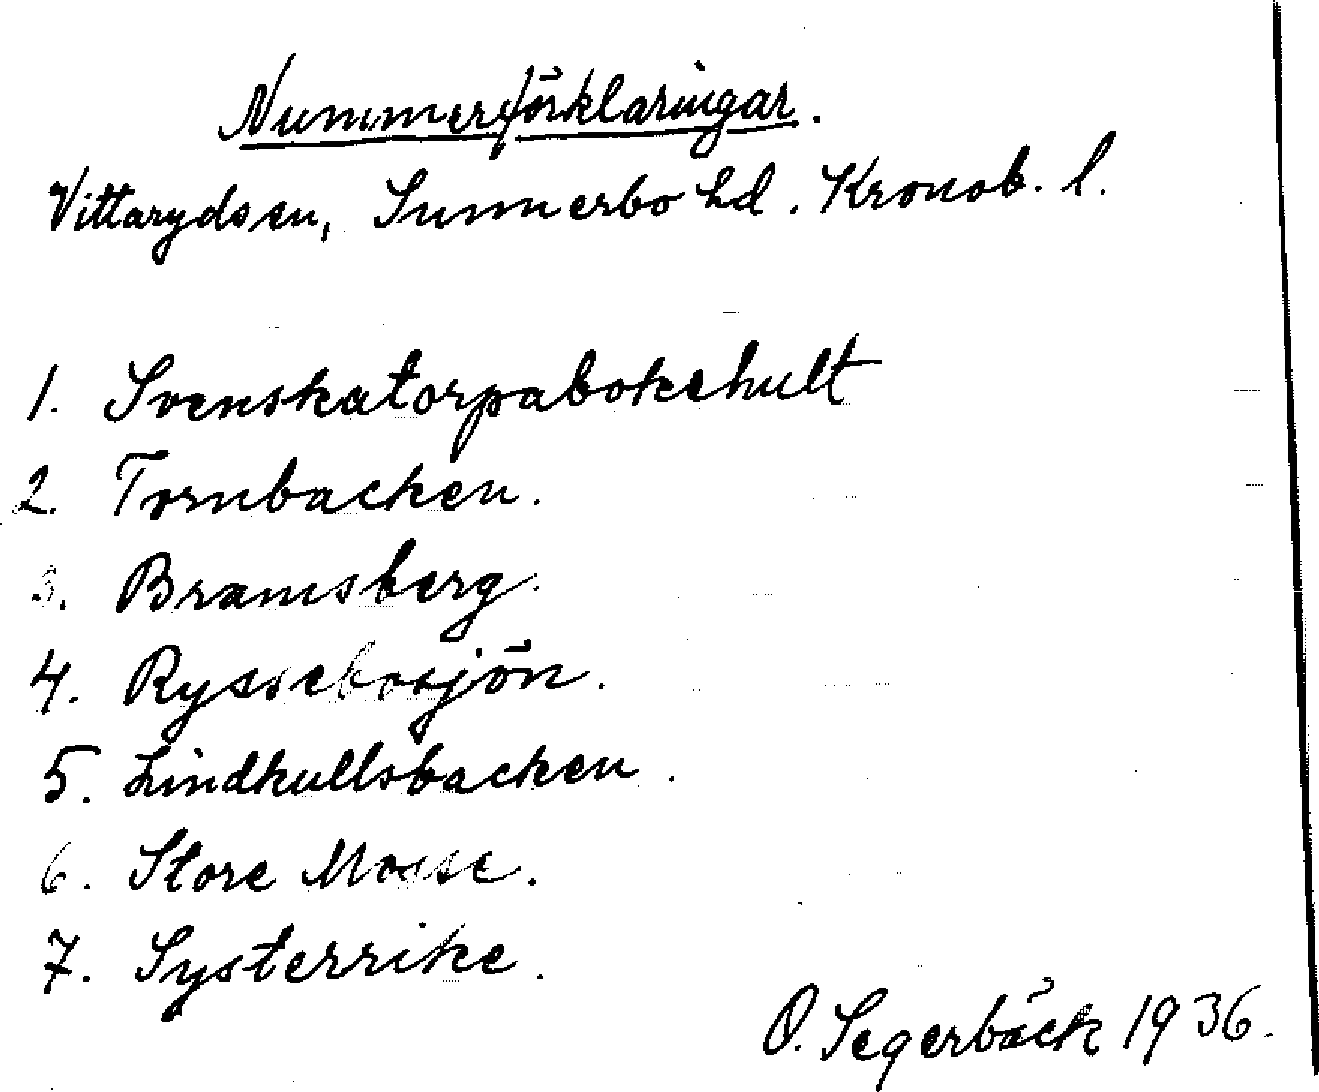 Nummerförklaringar.
Vittarydsen, Sunnerbo hd. Kronob. l.
1. Svenskatorpabokehult
2. Tornbacken.
3. Bramsberg.
4. Ryssebosjön.
5. Lindkullsbacken.
6. Store Mosse.
7. Systerrike.
O. Segerbäck 1936.